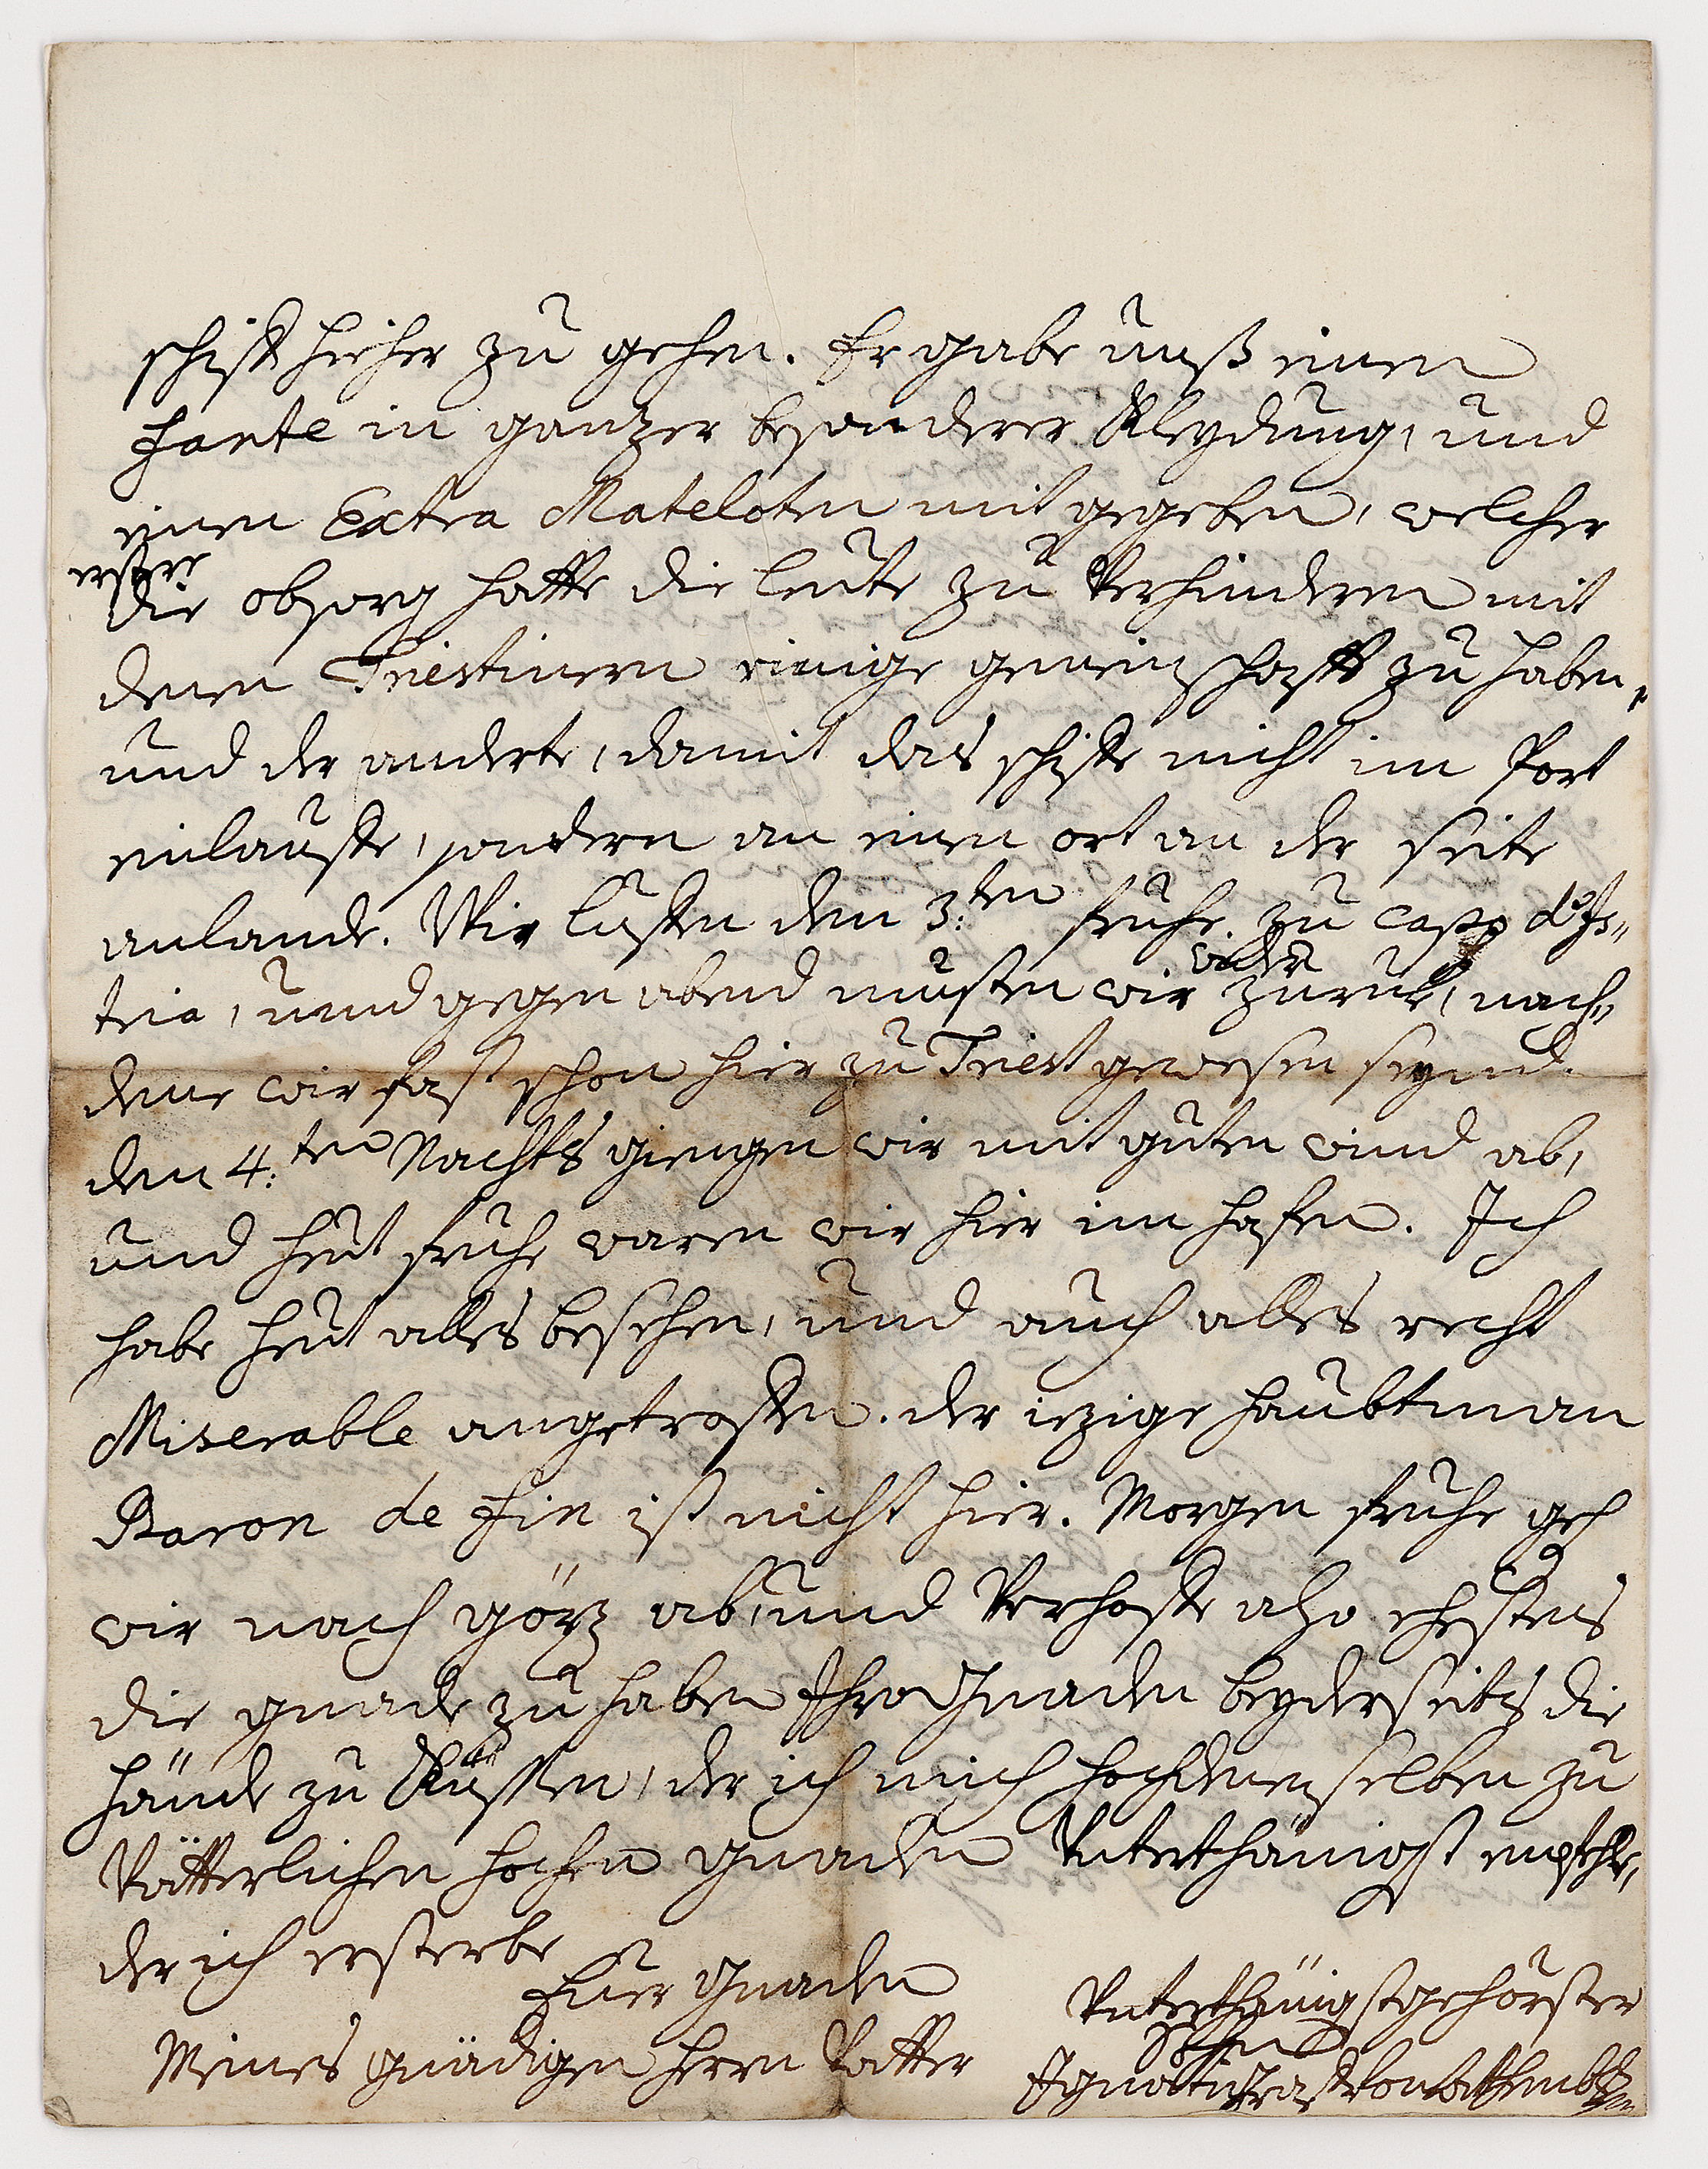 schiff hieher zu gehen. Er gabe unß einen
fante in gantzer besonderer Kleydung, und
einen Extra Mateloten mit gegeben, welcher
erstere
die obsorg hatte die leute zu Verhinderen mit
denen Triestinern einige gemeinschafft zu haben,
und der anderte, damit das schiff nicht im Port
einlauffe, sondern an einen ort an der seite
anlande. Wir lüffen den 3:ten fruhe zu capo d'Is„
tria, und gegen abend musten wir wider zuruk, nach„
deme wir fast schon hier zu Triest gewesen seynd.
den 4:ten Nachts giengen wir mit guten wind ab,
und heut fruhe waren wir hier im hafen. Ich
habe heut alles besehen, und auch alles recht
Miserable angetroffen. der iezige haubtman
Baron de Fin ist nicht hier. Morgen fruhe geh
wir nach görz ab, und Verhoffe also ehestens
die gnade zu haben Ihro Gnaden beyderseits die
hände zu Küssen, der ich mich hochdenenselben zu
Vätterlichen hochen gnaden Unterthänigst empfehle,
der ich ersterbe
Euer Gnaden
Meines gnädigen herrn Vatter
Unterthänigstgehorster
Sohn